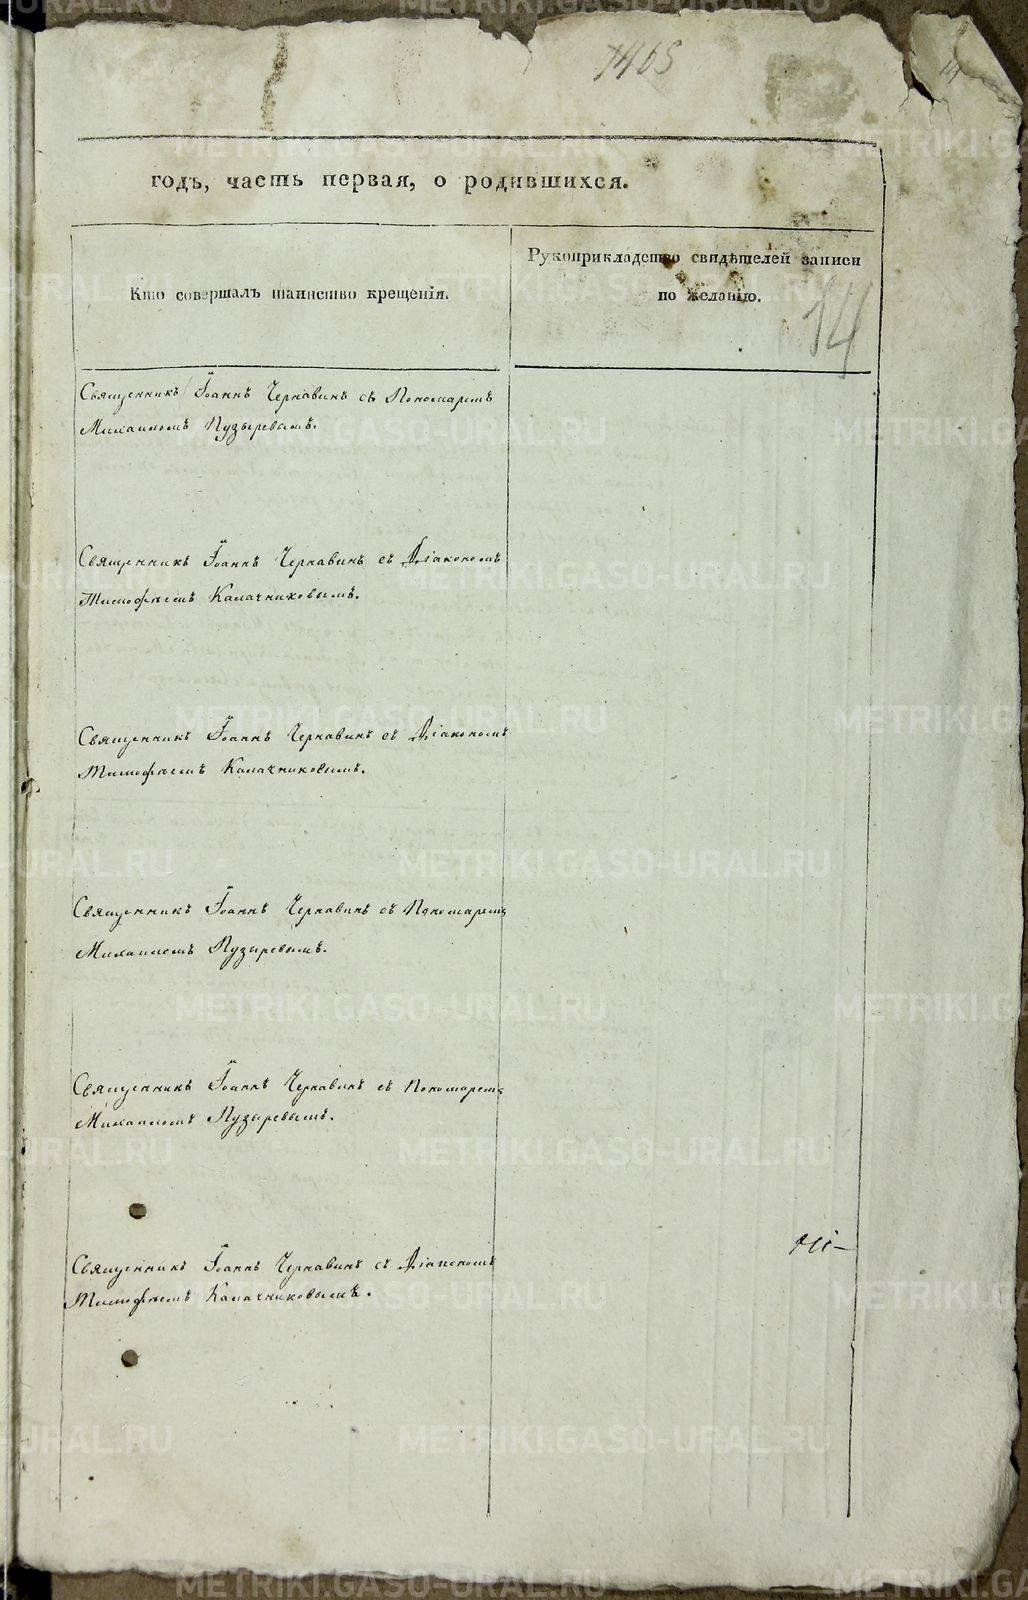 1465
14
годъ, часть первая, о родившихся.
Кто совершалъ таинство крещенія.
Рукоприкладство свидѣтелей записи
по желанію.
14
Священникъ Іоаннъ Чернавинъ съ Пономаремъ
Михаиломъ Пузыревымъ.
Священникъ Іоаннъ Чернавинъ съ Діакономъ
Тимофѣемъ Калачниковымъ.
Священникъ Іоаннъ Чернавинъ съ Діакономъ
Тимофѣемъ Калачниковымъ.
Священникъ Іоаннъ Чернавинъ съ Пономаремъ
Михаиломъ Пузыревымъ.
Священникъ Іоаннъ Чернавинъ съ Пономаремъ
Михаиломъ Пузыревымъ.
Священникъ Іоаннъ Чернавинъ съ Діакономъ
Тимофѣемъ Калачниковымъ.
METRIKI.GASO-URAL.RU